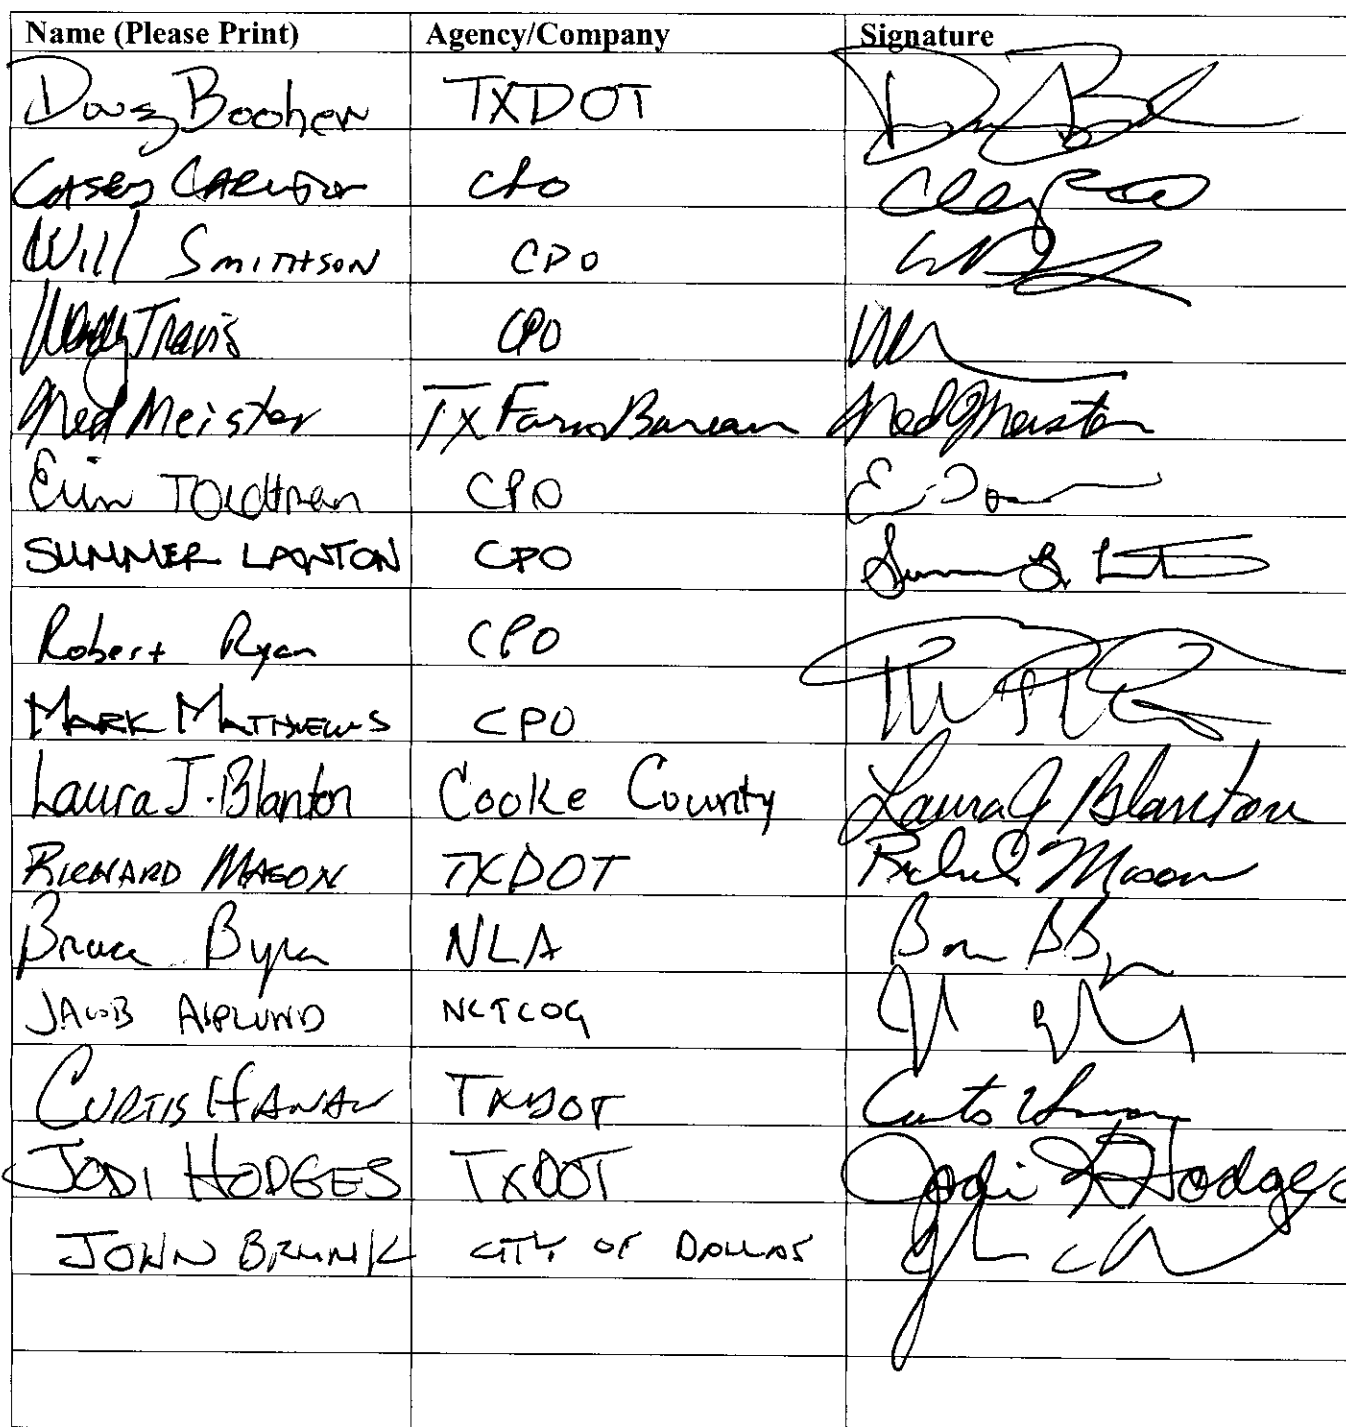 Name (Please Print) Agency/Company Signature
Doug Booher TXDOT
Casey Carlton CPO
Will Smithson CPO
Wendy Travis CPO
Ned Meister TX Farm Bureau Ned Meister
Erin CPO
SUMMER LANTON CPO
Robert Ryan CPO
MARK MATTHEWS CPO
Laura J. Blanton Cooke County Laura J Blanton
RICHARD MASON TXDOT Richard Mason
Bruce NLA
JACOB ASPLUND NCTCOG
CURTIS HANAN TXDOT Curtis Hanan
JODI HODGES TXDOT Jodi K Hodges
JOHN BRUNK CITY OF DALLAS